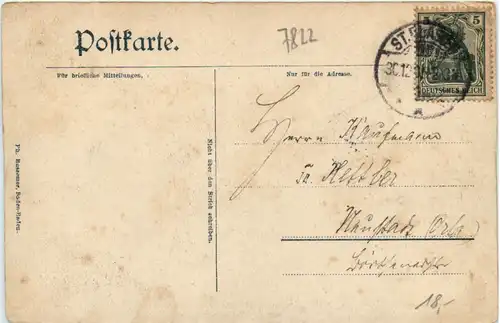 Postkarte.
7822
Für briefliche Mitteilungen.
Nur für die Adresse.
5 5
DEUTSCHES REICH
ST. BLASIEN
30.12
Herrn Kaufmann
Neustadt
Nicht über den Strich schreiben.
Ph. Bussemer, Baden-Baden.
18,-